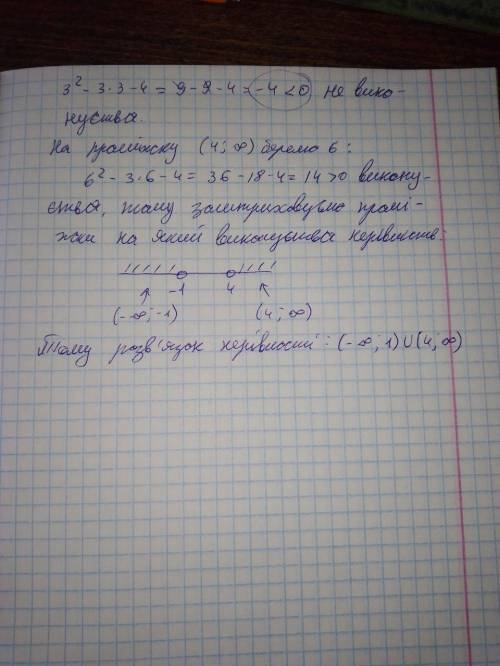 3² - 3·3 - 4 = 9 - 9 - 4 = -4 < 0 не вико-
нується.
На проміжку (4; ∞) беремо 6:
6² - 3·6 - 4 = 36 - 18 - 4 = 14 > 0 викону-
ється, тому заштриховуємо промі-
жки на якій виконується нерівність:
-1 4
(-∞; -1) (4; ∞)
Тому розв'язок нерівності: (-∞; 1) ∪ (4; ∞)